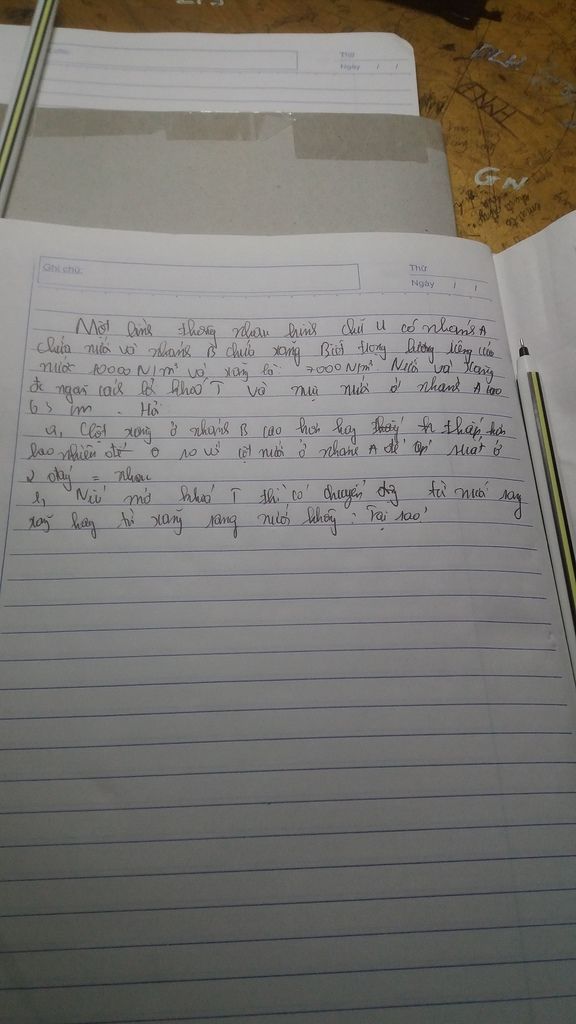 Thứ
Ngày / /
GN
Ghi chú:
Thứ
Ngày / /
Một bình thông nhau hình chữ U có nhánh A
chứa nước và nhánh B chứa xăng Biết trọng lượng riêng của
nước 10000 N/m³ và xăng là 7000 N/m³. Nước và xăng
đc ngăn cách bởi khoá T và mực nước ở nhánh A cao
63 cm. Hỏi
a, Cột xăng ở nhánh B cao hơn hay thấp hơn
bao nhiêu so với cột nước ở nhánh A để áp suất ở
2 đáy = nhau
b, Nếu mở khoá T thì có chuyển động từ nước sang
xăng hay từ xăng sang nước không? Tại sao?